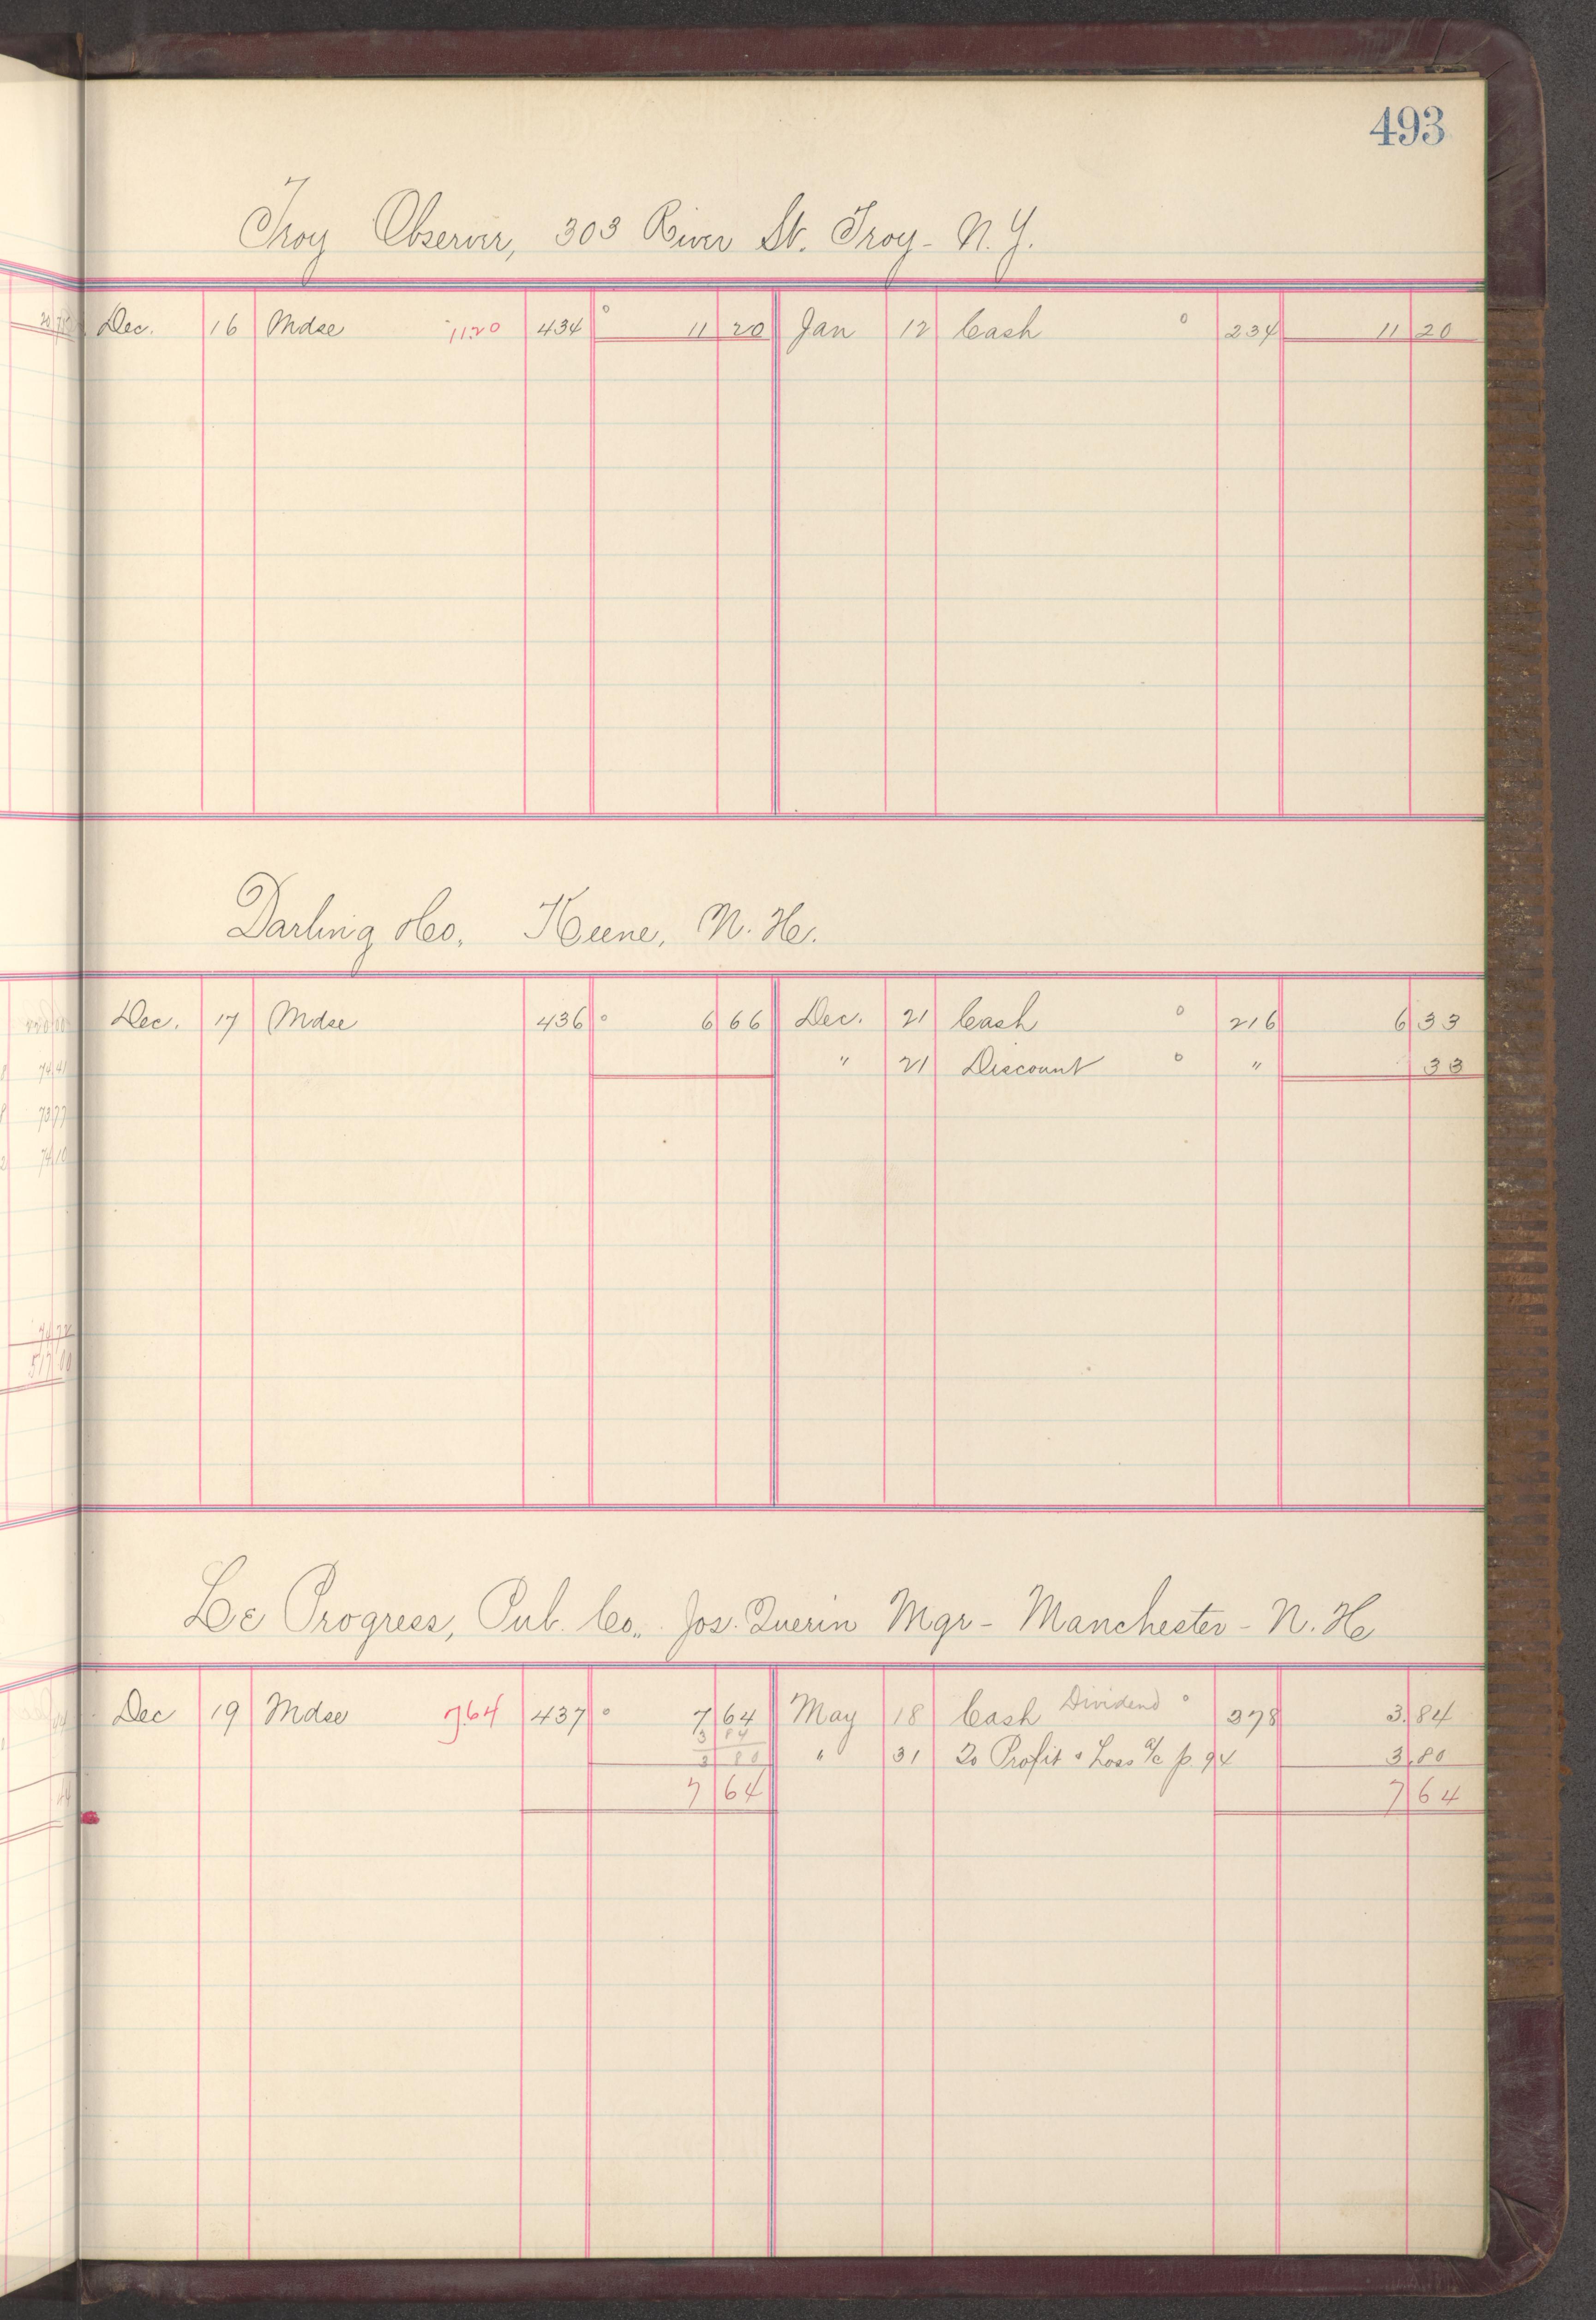 493
Troy Observer, 303 River St. Troy - N.Y.
Dec. 16 Mdse 11.20 434 11 20 Jan 12 Cash 234 11 20
Darling & Co. Keene, N.H.
Dec. 17 Mdse 436 6 66 Dec. 21 Cash 216 6 33
" 21 Discount " 33
Le Progress, Pub. Co., Jos. Querin Mgr - Manchester - N.H
Dec 19 Mdse 7.64 437 7 64 May 18 Cash Dividend 378 3.84
3 84
3 80 " 31 To Profit & Loss a/c p. 94 3.80
7 64 7 64